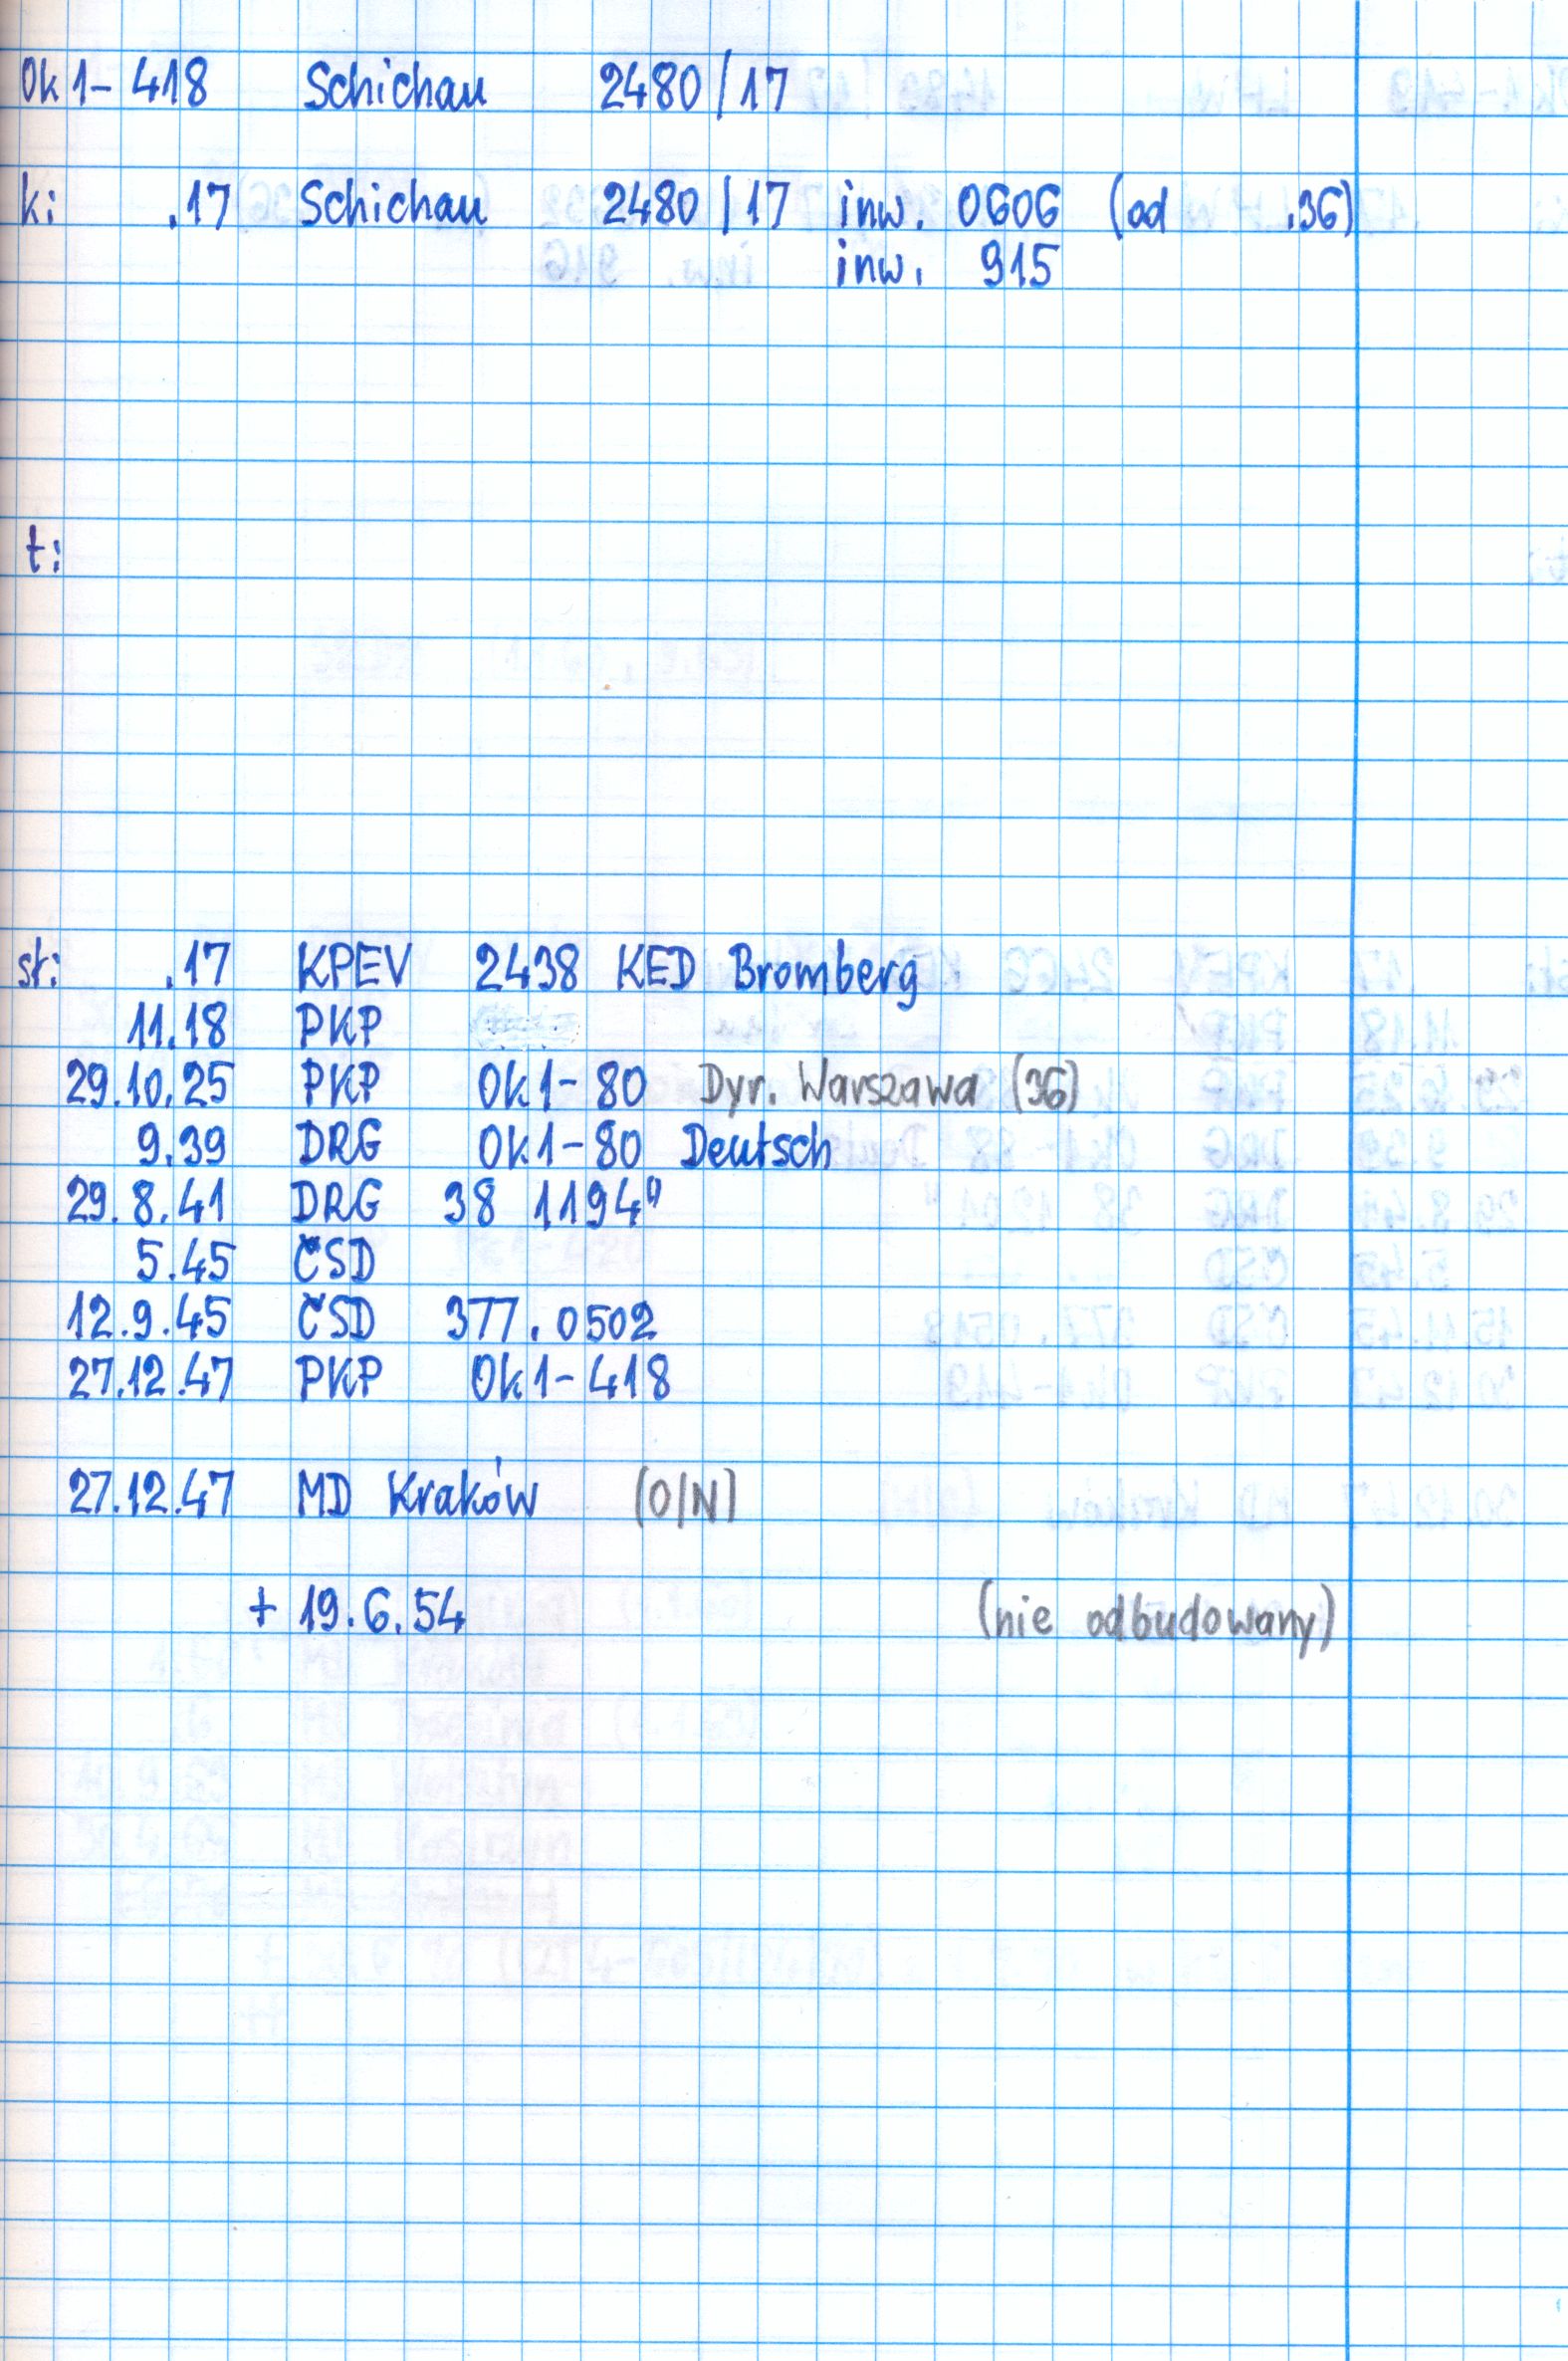 Ok1-418 Schichau 2480/17
k: .17 Schichau 2480/17 inw. 0606 (od .36)
inw. 915
t:
st: .17 KPEV 2438 KED Bromberg
11.18 PKP
29.10.25 PKP Ok1-80 Dyr. Warszawa (36)
9.39 DRG Ok1-80 Deutsch
29.8.41 DRG 38 1194"
5.45 ČSD
12.9.45 ČSD 377.0502
27.12.47 PKP Ok1-418
27.12.47 MD Kraków (O/N)
+ 19.6.54 (nie odbudowany)